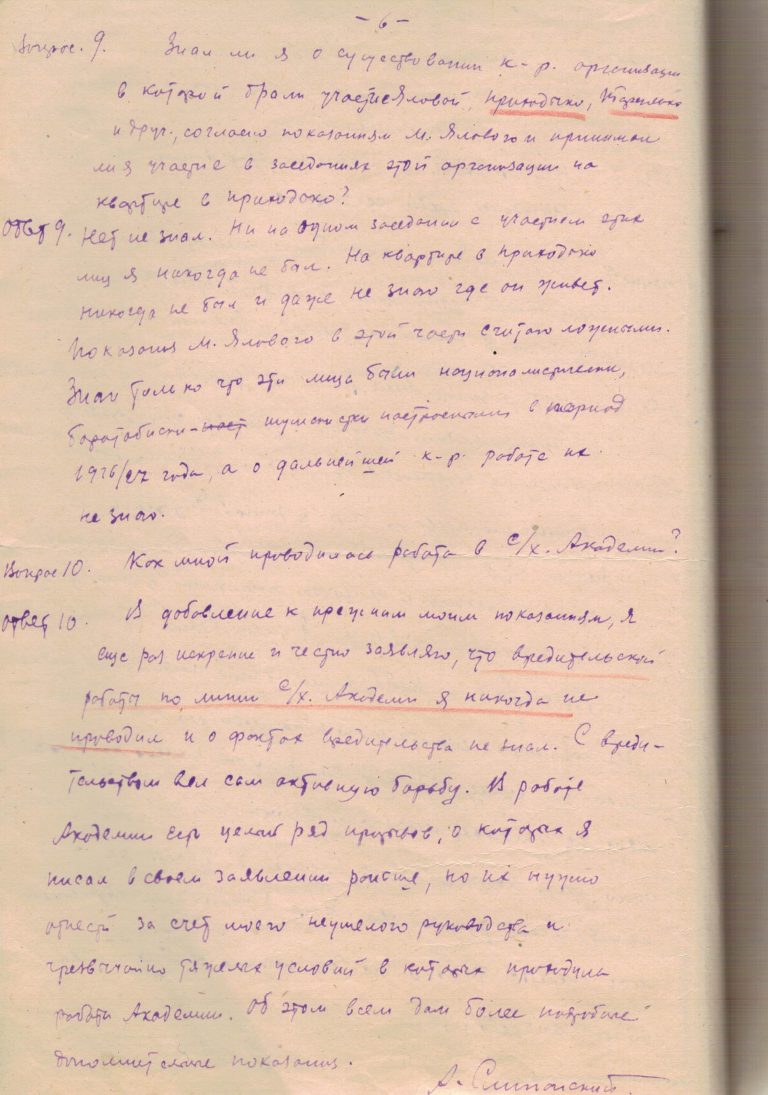 - 6 -
Вопрос. 9. Знал ли я о существовании к-р. организации
в которой брали участие Яловой, Приходько,
и друг., согласно показаниям М. Ялового и принимал
ли я участие в заседаниях этой организации на
квартире в Приходько?
Ответ 9. Нет не знал. Ни на одном заседании с участием этих
лиц я никогда не был. На квартире в Приходько
никогда не был и даже не знаю где он живет.
Показания М. Ялового в этой части считаю ложными.
Знаю только что эти лица были националистически,
боротьбистки- шумскистки настроенными в период
1926/27 года, а о дальнейшей к-р. работе их
не знаю.
Вопрос 10. Как мной проводилась работа в с/х. Академии?
Ответ 10. В добавление к прежним моим показаниям, я
еще раз искренне и честно заявляю, что вредительской
работы по линии с/х. Академии я никогда не
проводил и о фактах вредительства не знал. С вреди-
тельством вел сам активную борьбу. В работе
Академии есть целый ряд прорывов, о которых я
писал в своем заявлении раньше, но их нужно
отнести за счет моего неумелого руководства и
чрезвычайно тяжелых условий в которых проходила
работа Академии. Об этом всем дам более подробные
дополнительные показания.
А. Слипанский